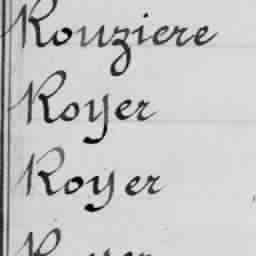 Rouziere
Royer
Royer